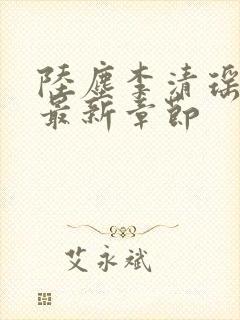 陆尘李清瑶
最新章节
艾永斌